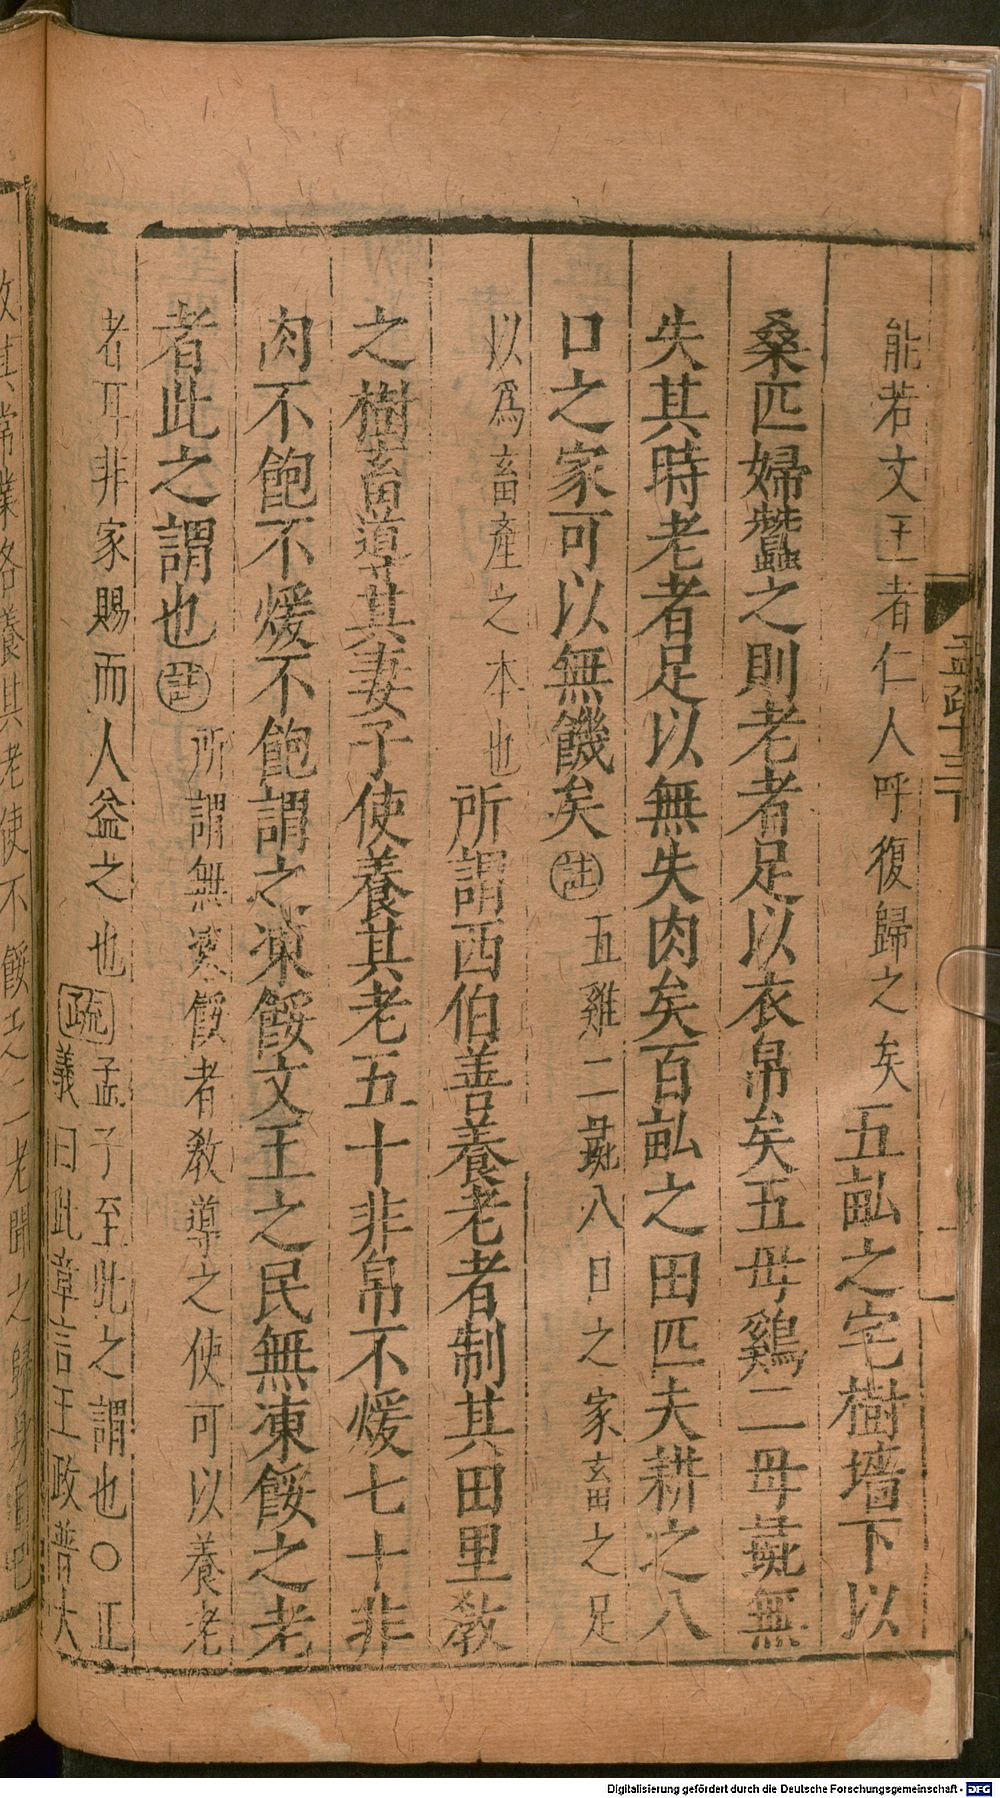 能若文王者仁人呼復歸之矣五畝之宅樹墻下以
桑匹婦蠶之則老者足以衣帛矣五母鷄二母彘無
失其時老者足以無失肉矣百畝之田匹夫耕之八
口之家可以無饑矣註五雞二彘八口之家畜之足
以爲畜產之本也所謂西伯善養老者制其田里敎
之樹畜道其妻子使養其老五十非帛不煖七十非
肉不飽不煖不飽謂之凍餒文王之民無凍餒之老
者此之謂也註所謂無凍餒者敎導之使可以養老
者耳非家賜而人益之也疏孟子至此之謂也○正
義曰此章言王政普大
孟疏十三下
Digitalisierung gefördert durch die Deutsche Forschungsgemeinschaft - DFG